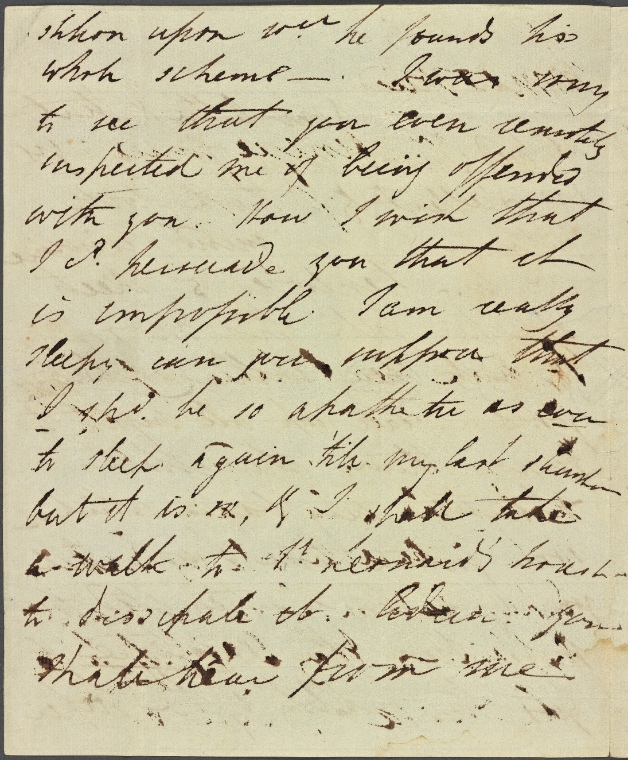 sition upon wch he founds his
whole scheme —. I was sorry
to see that you even remotely
suspected me of being offended
with you. How I wish that
I cd. persuade you that it
is impossible. I am really
sleepy can you suppose that
I shd. be so apathetic as ever
to sleep again 'till my last slumber
but it is so, & I shall take
a walk to St house
to dissipate it. you
shall hear from me